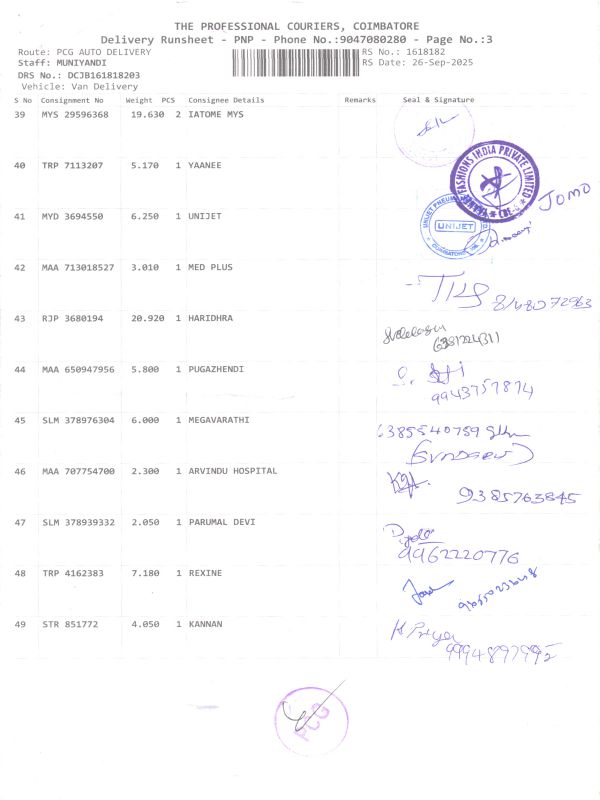 THE PROFESSIONAL COURIERS, COIMBATORE
Delivery Runsheet - PNP - Phone No.:9047080280 - Page No.:3
Route: PCG AUTO DELIVERY RS No.: 1618182
Staff: MUNIYANDI RS Date: 26-Sep-2025
DRS No.: DCJB161818203
Vehicle: Van Delivery
S No Consignment No Weight PCS Consignee Details Remarks Seal & Signature
39 MYS 29596368 19.630 2 IATOME MYS
40 TRP 7113207 5.170 1 YAANEE
FASHIONS INDIA PRIVATE LIMITED
CBE-6
JOMO
41 MYD 3694550 6.250 1 UNIJET
UNIJET
42 MAA 713018527 3.010 1 MED PLUS
8148072963
43 RJP 3680194 20.920 1 HARIDHRA
6381224311
44 MAA 650947956 5.800 1 PUGAZHENDI
9943757874
45 SLM 378976304 6.000 1 MEGAVARATHI
6385540759
46 MAA 707754700 2.300 1 ARVINDU HOSPITAL
9385763845
47 SLM 378939332 2.050 1 PARUMAL DEVI
9962220776
48 TRP 4162383 7.180 1 REXINE
49 STR 851772 4.050 1 KANNAN
K Priya
9994897992
PCG